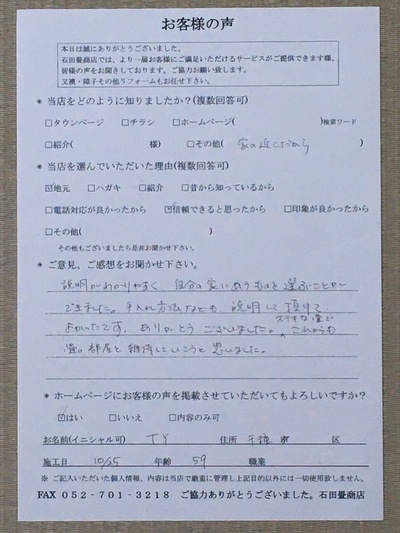 お客様の声
本日は誠にありがとうございました。
石田畳商店では、より一層お客様にご満足いただけるサービスがご提供できます様、
皆様の声をお聞きしております。ご協力お願い致します。
又襖・障子その他リフォームもお任せ下さい。
＊ 当店をどのように知りましたか？(複数回答可)
□タウンページ □チラシ □ホームページ( )検索ワード
□紹介( 様) □その他( 家の近くだから )
＊ 当店を選んでいただいた理由(複数回答可)
☑地元 □ハガキ □紹介 □昔から知っているから
□電話対応が良かったから ☑信頼できると思ったから □印象が良かったから
□その他( )
その他もございましたら是非お聞かせ下さい。
＊ ご意見、ご感想をお聞かせ下さい。
説明がわかりやすく、自分の家に合うものを選ぶことが
できました。手入れ方法なども 説明して頂けて
よかったです。ありがとう ございました。これからも
ステキな畳で
畳の部屋を維持していこうと思いました。
＊ ホームページにお客様の声を掲載させていただいてもよろしいですか？
☑はい □いいえ □内容のみ可
お名前(イニシャル可) TY 住所 千種 市 区
施工日 10/25 年齢 59 職業
※ ご記入いただいた個人情報、内容は当店で厳重に管理し上記目的以外には一切使用致しません。
FAX 052-701-3218 ご協力ありがとうございました。石田畳商店